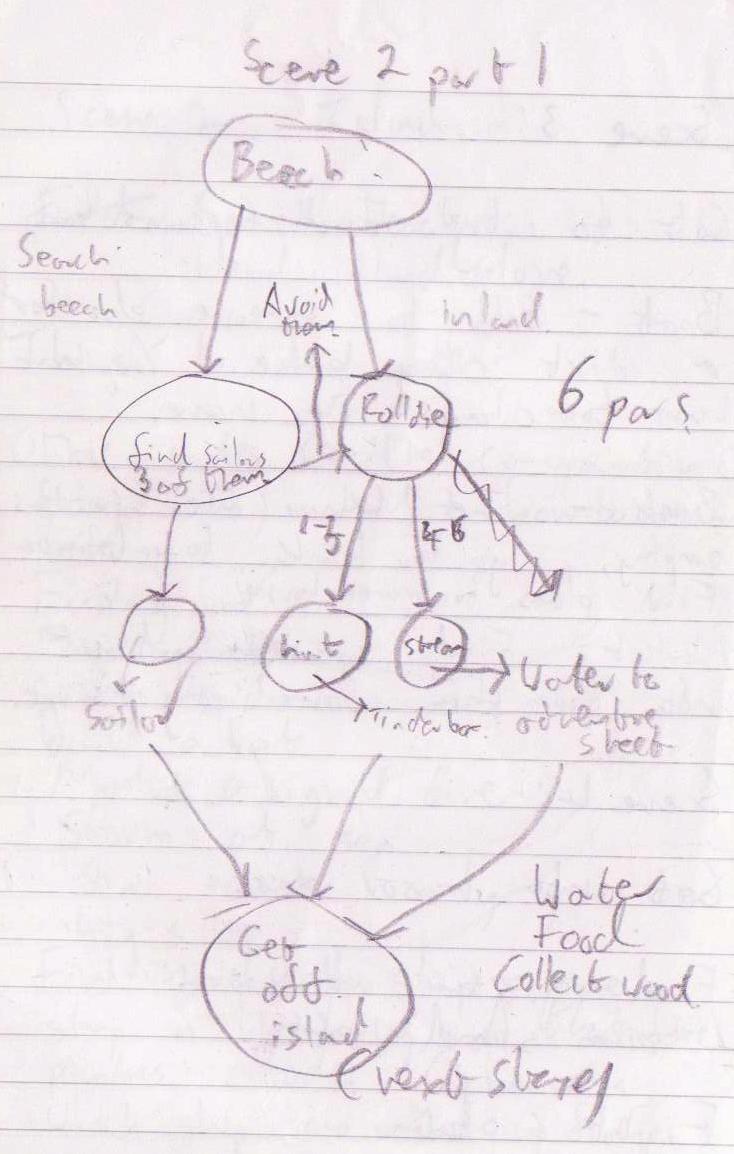 Scene 2 part 1
Beech
Search
beech
Avoid
them
inland.
find sailors
3 of them
Roll die
6 pars
1-3
4-6
hint
stream
Sailor
Tinderbox.
Water to
adventure
sheet
Water
Food
Collect wood
Get
off
island
(next stage)